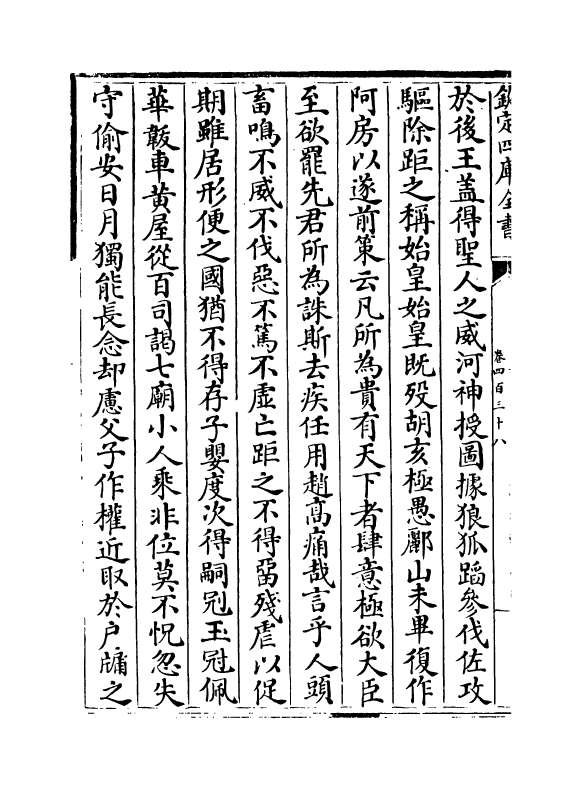 欽定四庫全書
卷四百三十八
於後王盖得聖人之威河神授圖據狼狐蹈參伐佐攻
驅除距之稱始皇始皇既歿胡亥極愚酈山未畢復作
阿房以遂前策云凡所為貴有天下者肆意極欲大臣
至欲罷先君所為誅斯去疾任用趙高痛哉言乎人頭
畜鳴不威不伐惡不篤不虛亡距之不得畱殘虐以促
期雖居形便之國猶不得存子嬰度次得嗣冠玉冠佩
華韍車黄屋從百司謁七廟小人乘非位莫不怳忽失
守偷安日月獨能長念却慮父子作權近取於户牖之